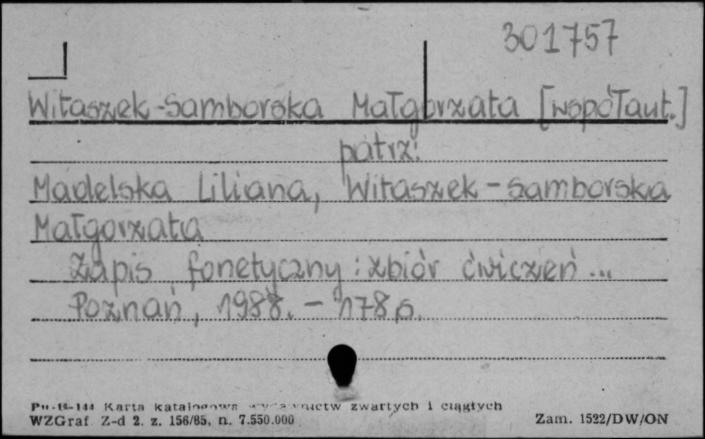 301757
Witaszek-Samborska Małgorzata [współaut.]
patrz:
Madelska Liliana, Witaszek-Samborska
Małgorzata
Zapis fonetyczny : zbiór ćwiczeń ...
Poznań, 1988. - 178 s.
Pu-16-144 Karta katalogowa wydawnictw zwartych i ciągłych
WZGraf Z-d 2. z. 156/85, n. 7.550.000 Zam. 1522/DW/ON